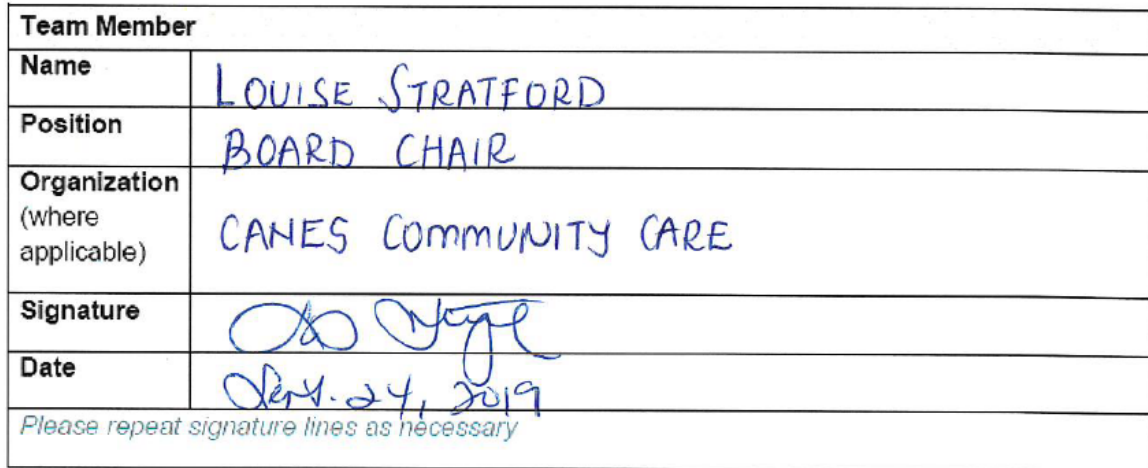 Team Member
Name LOUISE STRATFORD
Position BOARD CHAIR
Organization
(where
applicable) CANES COMMUNITY CARE
Signature
Date Sept. 24, 2019
Please repeat signature lines as necessary